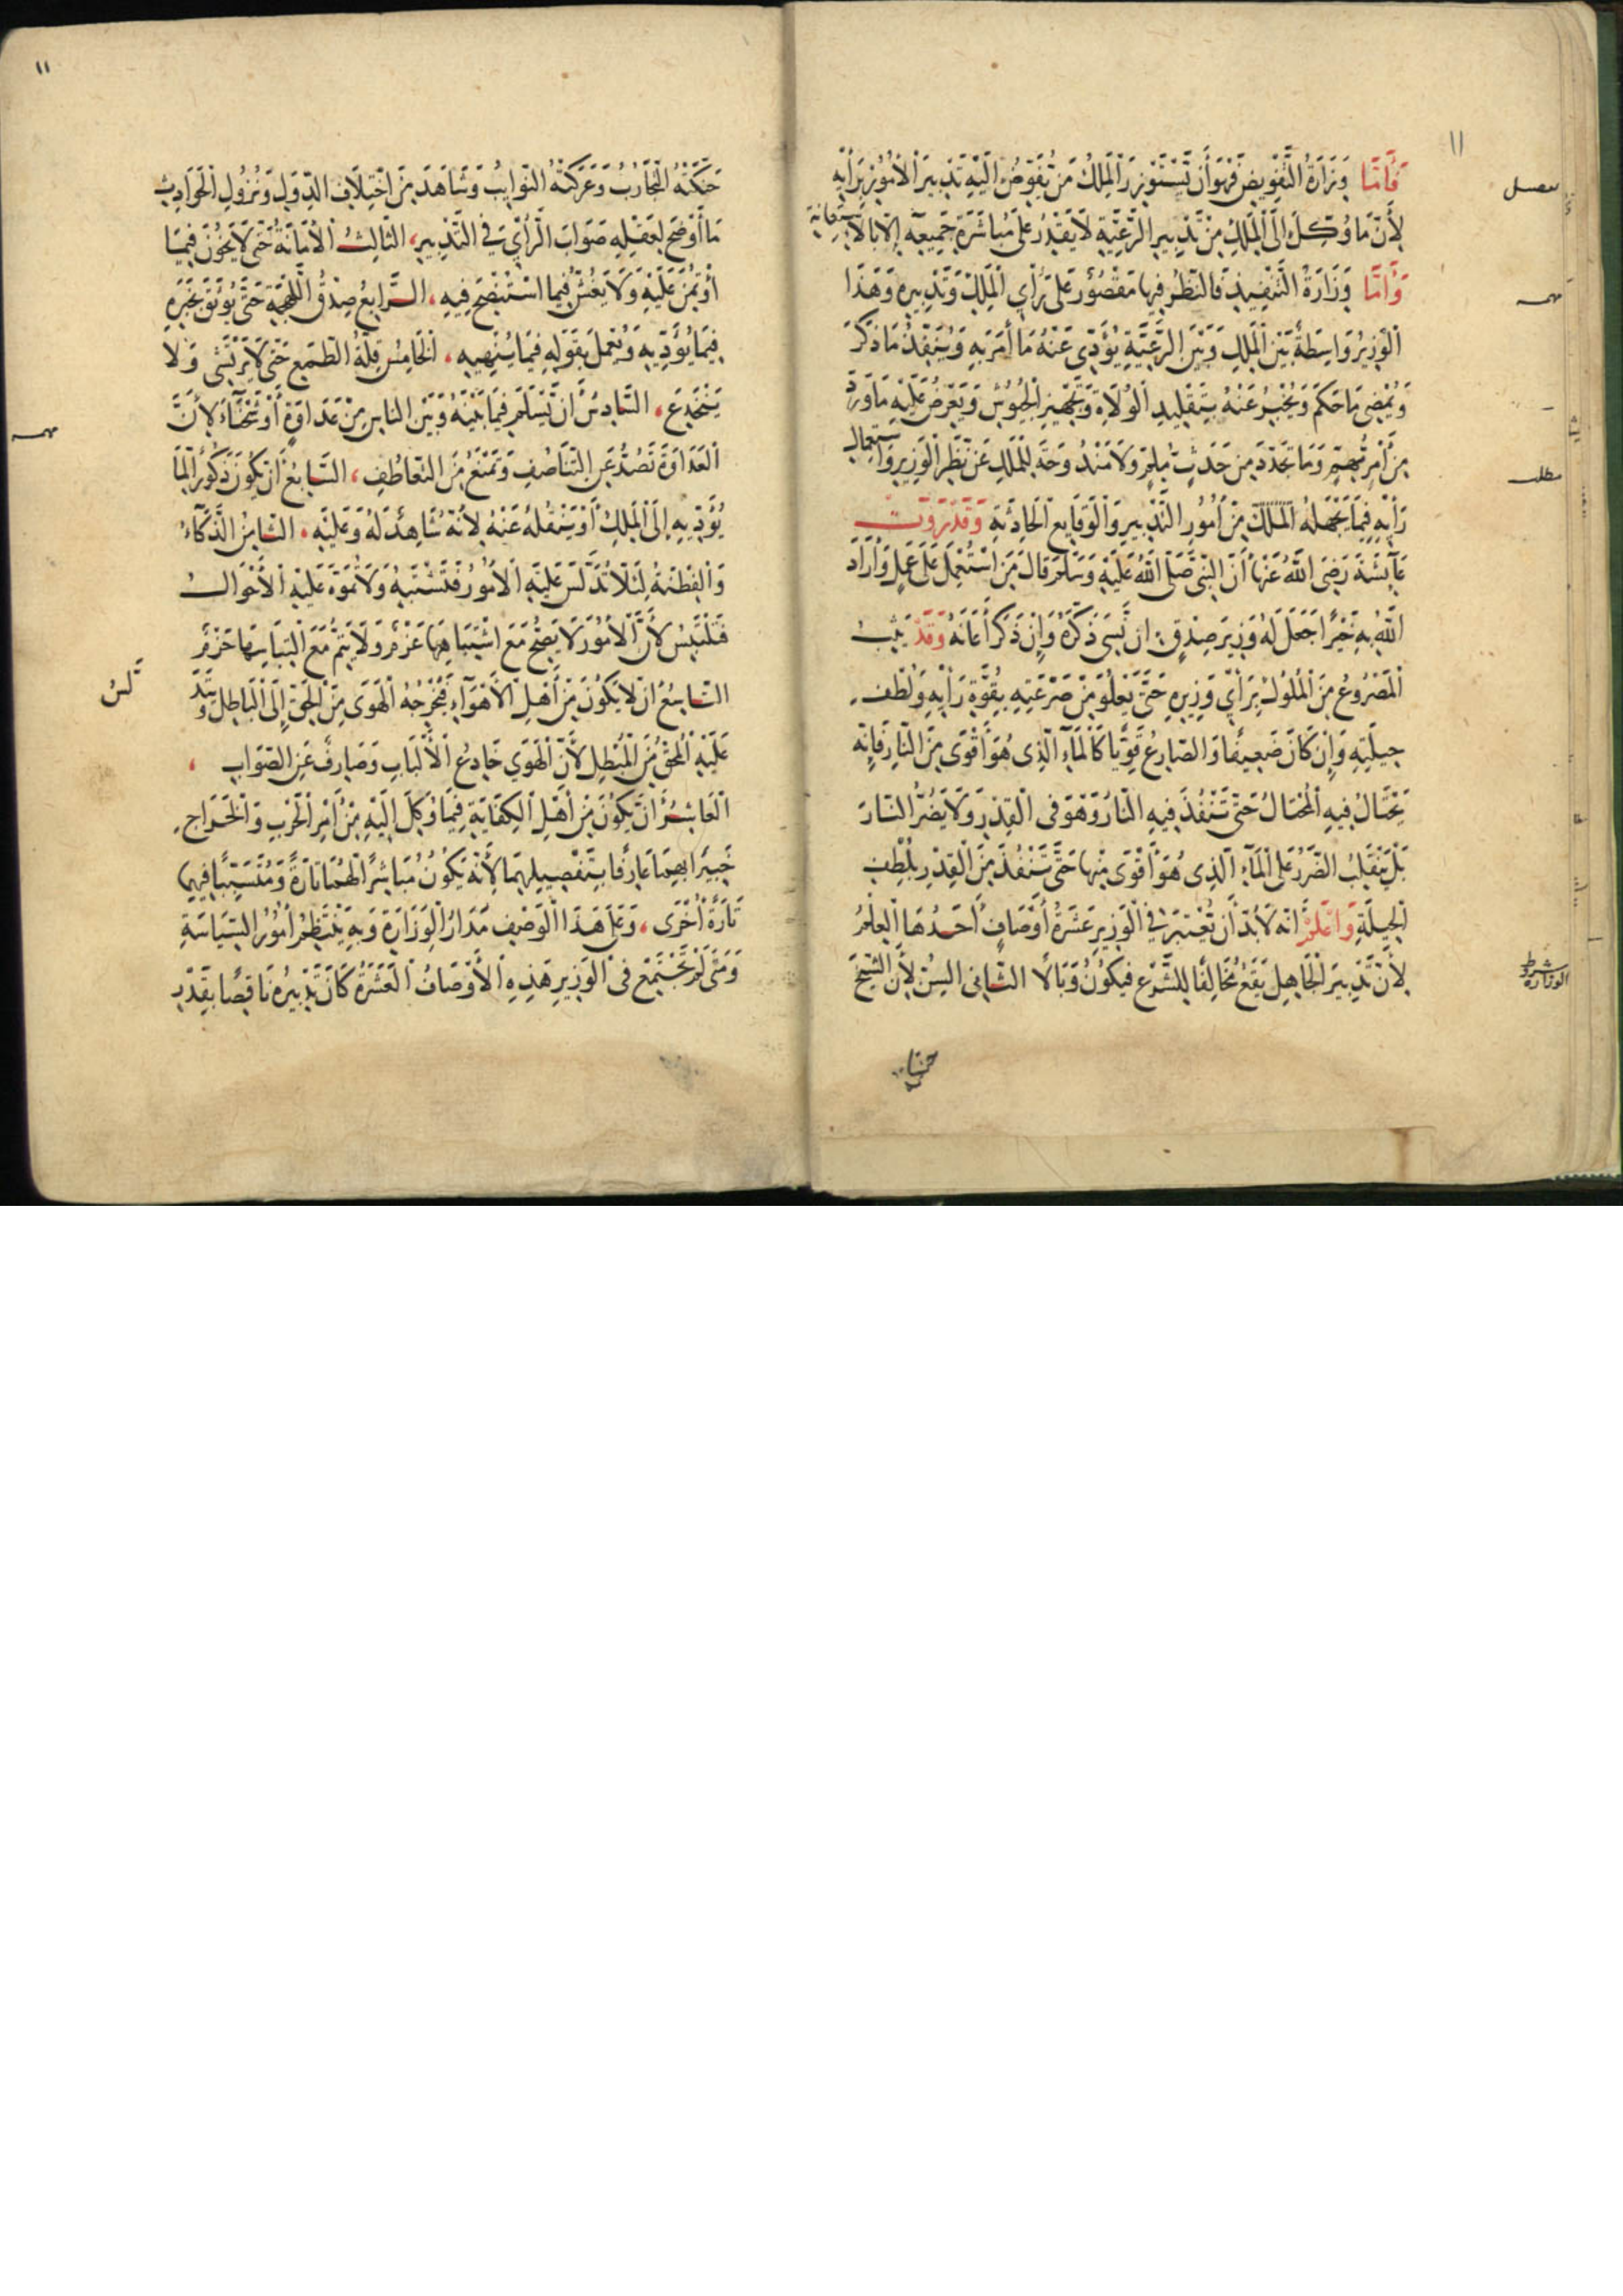 ١١
فَأَمَّا وِزَارَةُ التَّفْوِيضِ فَهُوَ أَن يَسْتَوْزِرَ الْمَلِكُ مَن يُفَوِّضُ إِلَيْهِ تَدْبِيرَ الْأُمُورِ بِرَأْيِهِ
لِأَنَّ مَا وُكِّلَ إِلَى الْمَلِكِ مِنْ تَدْبِيرِ الرَّعِيَّةِ لَا يَقْدِرُ عَلَى مُبَاشَرَةِ جَمِيعِهِ إِلَّا بِالِاسْتِعَانَةِ
وَأَمَّا وَزَارَةُ التَّنْفِيذِ فَالنَّظَرُ فِيهَا مَقْصُورٌ عَلَى رَأْيِ الْمَلِكِ وَتَدْبِيرِهِ وَهَذَا
الْوَزِيرُ وَاسِطَةٌ بَيْنَ الْمَلِكِ وَبَيْنَ الرَّعِيَّةِ يُؤَدِّي عَنْهُ مَا أَمَرَ بِهِ وَيُنَفِّذُ مَا ذَكَرَ
وَيُمْضِي مَا حَكَمَ وَيُخْبِرُ عَنْهُ بِتَقْلِيدِ الْوُلَاةِ وَتَجْهِيزِ الْجُيُوشِ وَيَعْرِضُ عَلَيْهِ مَا وَرَدَ
مِنْ أَمْرٍ مُهِمٍّ وَمَا تَجَدَّدَ مِن حَدَثٍ مُلِمٍّ وَلَا مَنْدُوحَةَ لِلْمَلِكِ عَنْ نَظَرِ الْوَزِيرِ وَاسْتِعْمَالِ
رَأْيِهِ فِيمَا يَجْهَلُهُ الْمَلِكُ مِنْ أُمُورِ التَّدْبِيرِ وَالْوَقَايِعِ الْحَادِثَةِ وَقَدْ رَوَتْ
عَائِشَةَ رَضِيَ اللَّهُ عَنْهَا أَنَّ النَّبِيَّ صَلَّى اللَّهُ عَلَيْهِ وَسَلَّمَ قَالَ مَنِ اسْتُعْمِلَ عَلَى عَمَلٍ وَأَرَادَ
اللَّهُ بِهِ خَيْرًا جَعَلَ لَهُ وَزِيرَ صِدْقٍ إِن نَسِيَ ذَكَّرَهُ وَإِنْ ذَكَرَ أَعَانَهُ وَقَدْ يَثِبُ
الْمَصْرُوعُ مِنَ الْمُلُوكِ بِرَأْيِ وَزِيرِهِ حَتَّى يَعْلُوَ مِنْ صَرْعَتِهِ بِقُوَّةِ رَأْيِهِ وَلُطْفِ
حِيلَتِهِ وَإِنْ كَانَ ضَعِيفًا وَالصَّارِعُ قَوِيًّا كَالْمَاءِ الَّذِي هُوَ أَقْوَى مِنَ النَّارِ فَإِنَّهُ
يَحْتَالُ فِيهِ الْمُحْتَالُ حَتَّى تَنْفُذَ فِيهِ النَّارُ وَهُوَ فِي الْقِدْرِ وَلَا يَضُرُّ النَّارَ
بَلْ يَنْقَلِبُ الضَّرَرُ عَلَى الْمَاءِ الَّذِي هُوَ أَقْوَى مِنْهَا حَتَّى تَسْتَنْفِذَ مِنَ الْقِدْرِ بِلُطْفِ
الْحِيلَةِ وَاعْلَمْ أَنَّهُ لَا بُدَّ أَنْ يُعْتَبَرَ فِي الْوَزِيرِ عَشَرَةُ أَوْصَافٍ أَحَدُهَا الْعِلْمُ
لِأَنَّ تَدْبِيرَ الْجَاهِلِ يَقَعُ مُخَالِفًا لِلشَّرْعِ فَيَكُونُ وَبَالًا الثَّانِي السِّنُّ لِأَنَّ الشَّيْخَ
مطلب
شرط
الوزارة
١١
حَنَّكَتْهُ التَّجَارِبُ وَعَرَكَتْهُ النَّوَايِبُ وَشَاهَدَ مِنَ اخْتِلَافِ الدُّوَلِ وَنُزُولِ الْحَوَادِثِ
مَا أَوْضَحَ لِعَقْلِهِ صَوَابَ الرَّأْيِ فِي التَّدْبِيرِ، الثَّالِثُ الْأَمَانَةُ حَتَّى لَا يَخُونَ فِيمَا
اؤْتُمِنَ عَلَيْهِ وَلَا يَغُشَّ فِيمَا اسْتُنْصِحَ فِيهِ، الرَّابِعُ صِدْقُ اللَّهْجَةِ حَتَّى يُوثَقَ بِخَبَرِهِ
فِيمَا يُؤَدِّيهِ وَيُعْمَلَ بِقَوْلِهِ فِيمَا يُنْهِيهِ، الْخَامِسُ قِلَّةُ الطَّمَعِ حَتَّى لَا يَرْتَشِي وَلَا
يَنْخَدِعَ، السَّادِسُ أَن يَسْلَمَ فِيمَا بَيْنَهُ وَبَيْنَ النَّاسِ مِنْ عَدَاوَةٍ أَوْ شَحْنَاءَ لِأَنَّ
الْعَدَاوَةَ تَصُدُّ عَنِ التَّنَاصُفِ وَتَمْنَعُ مِنَ التَّعَاطُفِ، السَّابِعُ أَن يَكُونَ ذَكُورًا لِمَا
يُؤَدِّيهِ إِلَى الْمَلِكِ أَوْ يَنْقُلُهُ عَنْهُ لِأَنَّهُ شَاهِدٌ لَهُ وَعَلَيْهِ، الثَّامِنُ الذَّكَاءُ
وَالْفِطْنَةُ لِئَلَّا تُدَلَّسَ عَلَيْهِ الْأُمُورُ فَتَشْتَبِهُ وَلَا تُمَوَّهَ عَلَيْهِ الْأَحْوَالُ
فَتَلْتَبِسُ لِأَنَّ الْأُمُورَ لَا يَصِحُّ مَعَ اشْتِبَاهِهَا عَزْمٌ وَلَا يَتِمُّ مَعَ الْتِبَاسِهَا حَزْمٌ
التَّاسِعُ أَنْ لَا يَكُونَ مِنْ أَهْلِ الْأَهْوَاءِ فَيُخْرِجُهُ الْهَوَى مِنَ الْحَقِّ إِلَى الْبَاطِلِ
عَلَيْهِ الْمُحِقُّ مِنَ الْمُبْطِلِ لِأَنَّ الْهَوَى خَادِعُ الْأَلْبَابِ وَصَارِفٌ عَنِ الصَّوَابِ،
الْعَاشِرُ أَنْ يَكُونَ مِنْ أَهْلِ الْكِفَايَةِ فِيمَا وُكِلَ إِلَيْهِ مِنْ أَمْرِ الْحَرْبِ وَالْخَرَاجِ
خَبِيرًا بِهِمَا عَارِفًا بِتَفْصِيلِهِمَا لِأَنَّهُ يَكُونُ مُبَاشِرًا لَهُمَا تَارَةً وَمُتَسَبِّبًا فِيهِمَا
تَارَةً أُخْرَى، وَعَلَى هَذَا الْوَصْفِ مَدَارُ الْوَزَارَةِ وَبِهِ يَنْتَظِمُ أُمُورُ السِّيَاسَةِ
وَمَتَى لَمْ تَجْتَمِعْ فِي الْوَزِيرِ هَذِهِ الْأَوْصَافُ الْعَشَرَةُ كَانَ تَدْبِيرُهُ نَاقِصًا بِقَدْرِ